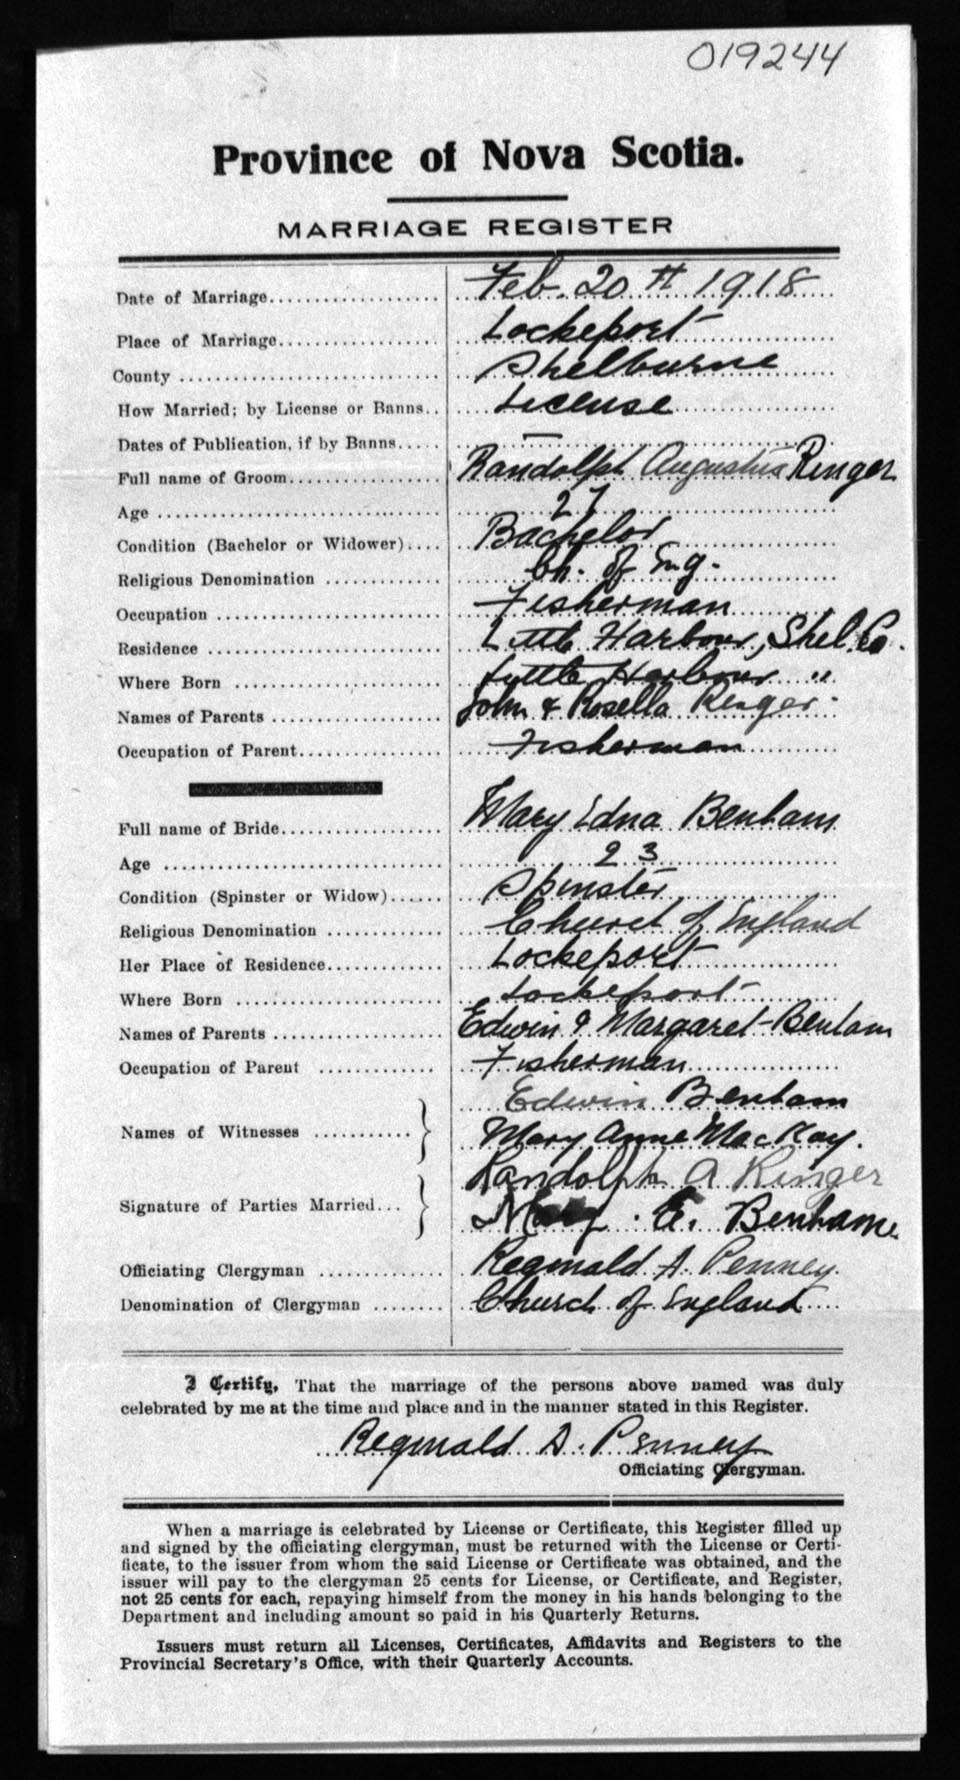 019244
Province of Nova Scotia.
MARRIAGE REGISTER
Date of Marriage................... Feb. 20th 1918
Place of Marriage.................. Lockeport
County ............................. Shelburne
How Married; by License or Banns.. License
Dates of Publication, if by Banns..... —
Full name of Groom................. Randolph Augustus Ringer
Age ................................ 27
Condition (Bachelor or Widower).... Bachelor
Religious Denomination ............. Ch. of Eng.
Occupation ......................... Fisherman
Residence .......................... Little Harbour, Shel. Co.
Where Born ....................... Lyttle Harbour "
Names of Parents ................... John & Rosella Ringer
Occupation of Parent................ Fisherman
Full name of Bride.................. Mary Edna Benham
Age ................................ 23
Condition (Spinster or Widow)...... Spinster
Religious Denomination ............. Church of England
Her Place of Residence............. Lockeport
Where Born ....................... Lockeport
Names of Parents ................... Edwin & Margaret Benham
Occupation of Parent ............. Fisherman
Names of Witnesses ........... } Edwin Benham
Mary Anne MacKay.
Signature of Parties Married... } Randolph A Ringer
Mary. E. Benham
Officiating Clergyman .............. Reginald A. Penney
Denomination of Clergyman ........ Church of England
I Certify, That the marriage of the persons above named was duly
celebrated by me at the time and place and in the manner stated in this Register.
Reginald A. Penney
Officiating Clergyman.
When a marriage is celebrated by License or Certificate, this Register filled up
and signed by the officiating clergyman, must be returned with the License or Certi-
ficate, to the issuer from whom the said License or Certificate was obtained, and the
issuer will pay to the clergyman 25 cents for License, or Certificate, and Register,
not 25 cents for each, repaying himself from the money in his hands belonging to the
Department and including amount so paid in his Quarterly Returns.
Issuers must return all Licenses, Certificates, Affidavits and Registers to the
Provincial Secretary's Office, with their Quarterly Accounts.